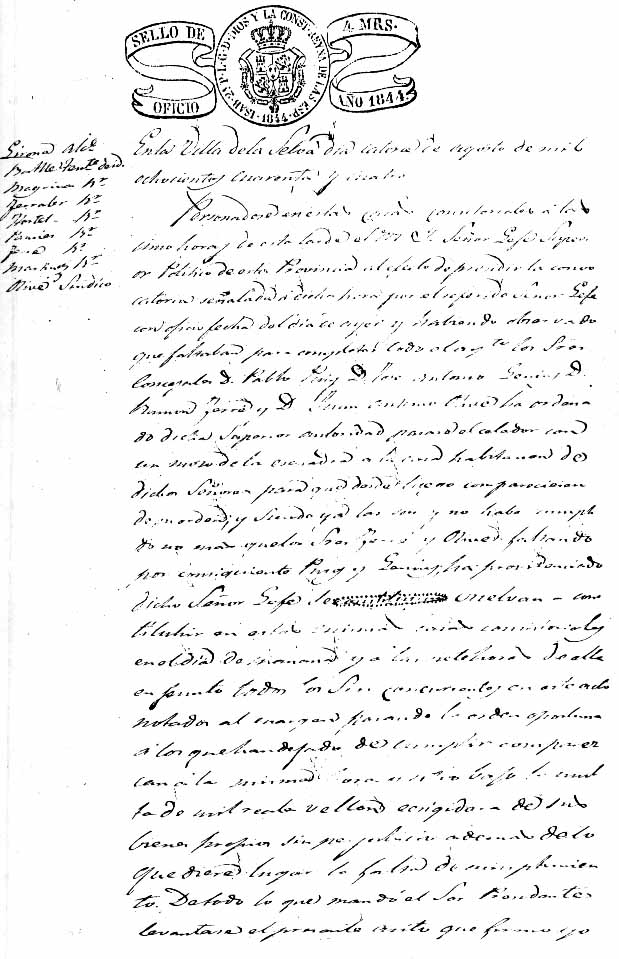 SELLO DE
OFICIO
ISAB. 2ª P. L. G. D. DIOS Y LA CONST. REYNA DE LAS ESP.
1844
4. MRS.
AÑO 1844.
Girona Alcᵉ
Batlle Tenᵗᵉ de id.
Rʳ
Ferrater Rʳ
Hortet Rʳ
Rʳ
Rʳ
Martinez Rʳ
Olivé Sindico
En la Villa de la Selva dia catorse de agosto de mil
ochocientos cuarenta y cuatro
Personadose en estas casas consistoriales á las
cinco horas de esta tarde el M. I. Señor Gefe Superi
or Politico de esta Provincia al efecto de precidir la convo
catoria señalada á dicha hora por el referido Señor Gefe
con oficio fecha del dia de ayer y habiendo observado
que faltaban para completar todo el aytᵒ los Sres
Concejales D. Pablo Puig D. Jose Antonio D.
Ramon Ferré y D. Juan Antonio Olivé ha ordena
do dicha Superior autoridad pasase el celador con
un moso de la escuadra a la casa habitacion de
dichos Señores para que desde luego compareciesen
de su orden, y siendo ya las seis y no habe cumpli
do no mas que los Sres Ferré y Olivé faltando
por consiguiente Puig y ha providenciado
dicho Señor Gefe se vuelvan a cons
tituhir en esta misma casa consistoriales
en el dia de mañana y a las siete horas de ella
en junto todos los Sres concurrentes en este acto
notados al margen pasando la orden oportuna
á los que han dejado de cumplir comparez
can á la misma hora y sitio bajo la mul
ta de mil reales vellon ecsigidora de sus
bienes propios sin perjuhicio ademas de lo
que diere lugar la falta de cumplimien
to. De todo lo que mandó el Sor Precidente
levantase el presente auto que firmo yo